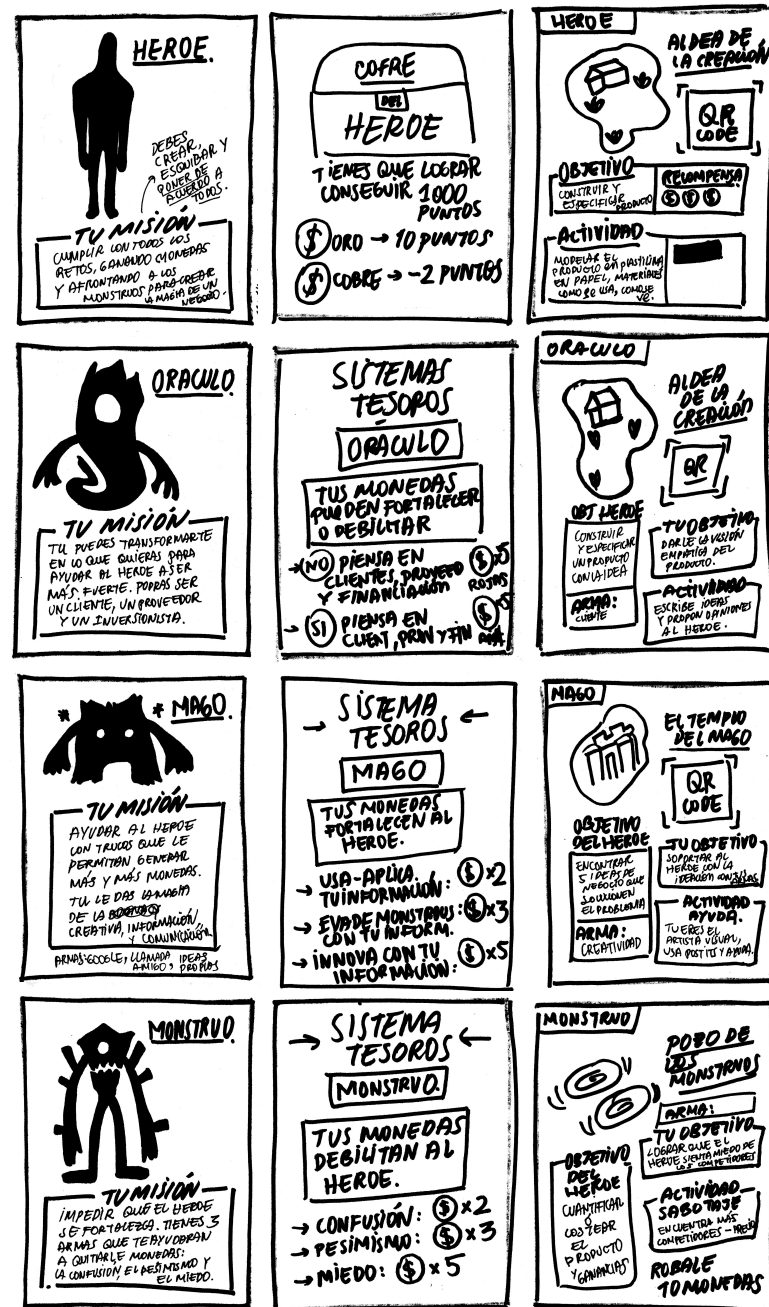 HEROE.
DEBES
CREAR,
ESQUIBAR Y
PONER DE
ACUERDO A
TODOS.
TU MISIÓN
CUMPLIR CON TODOS LOS
RETOS, GANANDO MONEDAS
Y AFRONTANDO A LOS
MONSTRUOS PARA CREAR
LA MAGIA DE UN
NEGOCIO.
COFRE
DEL
HEROE
TIENES QUE LOGRAR
CONSEGUIR 1000
PUNTOS
$ ORO → 10 PUNTOS
$ COBRE → -2 PUNTOS
HEROE
ALDEA DE
LA CREACIÓN
QR
CODE
OBJETIVO
CONSTRUIR Y
ESPECIFICAR
PRODUCTO
RECOMPENSA
$ $ $
ACTIVIDAD
MODELAR EL
PRODUCTO en PLASTILINA
EN PAPEL, MATERIALES
COMO SE USA, COMO SE
VE.
ORACULO.
TU MISIÓN
TU PUEDES TRANSFORMARTE
EN LO QUE QUIERAS PARA
AYUDAR AL HEROE A SER
MÁS FUERTE. PODRAS SER
UN CLIENTE, UN PROVEEDOR
Y UN INVERSIONISTA.
SISTEMAS
TESOROS
ORÁCULO
TUS MONEDAS
PUEDEN FORTALECER
O DEBILITAR
→ NO PIENSA EN
CLIENTES, PROVEED
Y FINANCIACIÓN
$ x5
ROJAS
→ SI PIENSA EN
CLIENT, PROV Y FIN
$ x5
ORACULO
ALDEA
DE LA
CREACIÓN
QR
OBJ HEROE
CONSTRUIR
Y ESPECIFICAR
UN PRODUCTO
CON LA IDEA
ARMA:
CLIENTE
TU OBJETIVO
DARLE LA VISIÓN
EMPATICA DEL
PRODUCTO.
ACTIVIDAD
ESCRIBE IDEAS
Y PROPON OPINIONES
AL HEROE.
* * MAGO.
TU MISIÓN
AYUDAR AL HEROE
CON TRUCOS QUE LE
PERMITAN GENERAR
MÁS Y MÁS MONEDAS.
TU LE DAS LA MAGIA
DE LA
CREATIVA, INFORMACIÓN,
Y COMUNICACIÓN
ARMAS: GOOGLE, LLAMADA AMIGO, IDEAS PROPIAS
→ SISTEMA ←
TESOROS
MAGO
TUS MONEDAS
FORTALECEN AL
HEROE.
→ USA-APLICA.
TU INFORMACIÓN: $ x2
→ EVADE MONSTRUOS: $ x3
CON TU INFORM.
→ INNOVA CON TU $ x5
INFORMACIÓN:
MAGO
EL TEMPLO
DEL MAGO
QR
CODE
OBJETIVO
DEL HEROE
ENCONTRAR
5 IDEAS DE
NEGOCIO QUE
SOLUCIONEN
EL PROBLEMA
ARMA:
CREATIVIDAD
TU OBJETIVO
SOPORTAR AL
HEROE CON LA
IDEACIÓN CON TUS
ARMAS
ACTIVIDAD
AYUDA.
TU ERES EL
ARTISTA VISUAL,
USA POST ITS Y AYUDA.
MONSTRUO.
TU MISIÓN
IMPEDIR QUE EL HEROE
SE FORTALEZCA. TIENES 3
ARMAS QUE TE AYUDARAN
A QUITARLE MONEDAS:
LA CONFUSIÓN, EL PESIMISMO Y
EL MIEDO.
→ SISTEMA ←
TESOROS
MONSTRUO.
TUS MONEDAS
DEBILITAN AL
HEROE.
→ CONFUSIÓN: $ x2
→ PESIMISMO: $ x3
→ MIEDO: $ x5
MONSTRUO
POZO DE
LOS
MONSTRUOS
ARMA:
TU OBJETIVO
LOGRAR QUE EL
HEROE SIENTA MIEDO DE
LOS COMPETIDORES
OBJETIVO
DEL
HEROE
CUANTIFICAR
O
COSTEAR
EL
PRODUCTO
Y GANANCIAS
ACTIVIDAD
SABOTAJE
ENCUENTRA MÁS
COMPETIDORES - PRECIO
ROBALE
10 MONEDAS